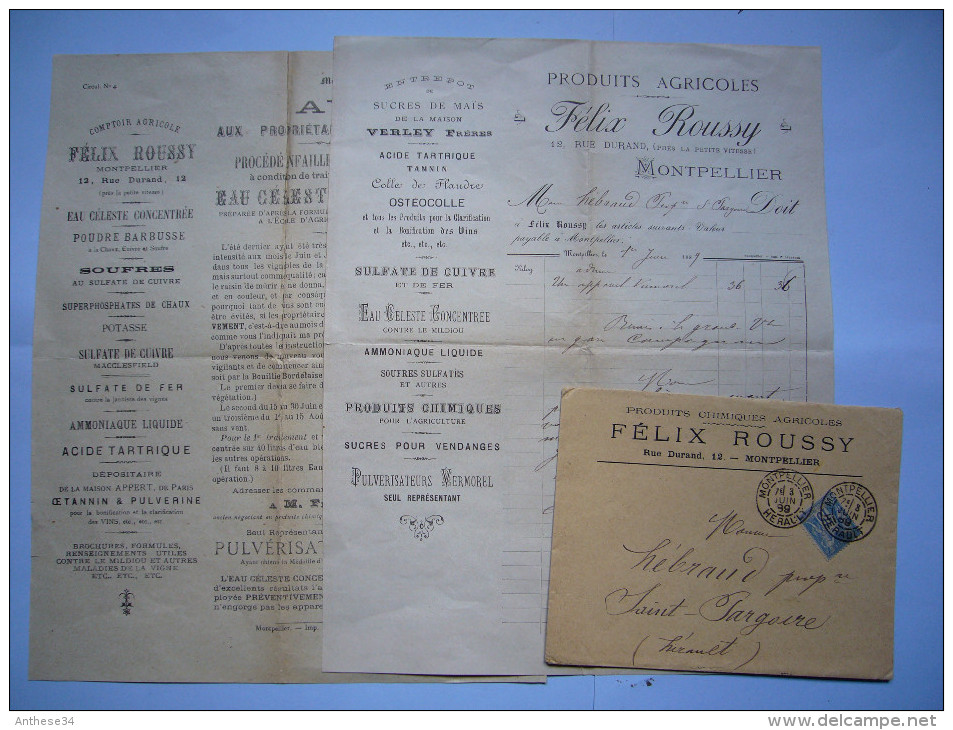 Circul. Nº 4
COMPTOIR AGRICOLE
FÉLIX ROUSSY
MONTPELLIER
12, Rue Durand, 12
(près la petite vitesse)
EAU CÉLESTE CONCENTRÉE
POUDRE BARBUSSE
SOUFRES
AU SULFATE DE CUIVRE
SUPERPHOSPHATES DE CHAUX
POTASSE
SULFATE DE CUIVRE
MACCLESFIELD
SULFATE DE FER
contre la
AMMONIAQUE LIQUIDE
ACIDE TARTRIQUE
DÉPOSITAIRE
DE LA MAISON APPERT, DE PARIS
ŒTANNIN & PULVERINE
pour la bonification et la clarification
des VINS, etc., etc., etc.
BROCHURES, FORMULES,
RENSEIGNEMENTS UTILES
CONTRE LE MILDIOU ET AUTRES
MALADIES DE LA VIGNE
ETC., ETC., ETC.
AUX PROPRIÉTA
PROCÉDÉ INFAILLI
à condition de trai
EAU CÉLEST
PRÉPARÉE D'APRÈS LA FORMULE
A L'ÉCOLE D'AGRIC
L'été dernier ayant été très
intensité aux mois de Juin et J
dans tous les vignobles de la
mais surtout comme qualité; car
le raisin de mûrir ne donna,
et en couleur, et par conséqu
pourquoi tant de vins sont en
être évités, si les propriétaire
VEMENT, c'est-à-dire au mois d
comme vous l'indiquait ma pr
D'après toutes les instructio
nous venons de nouveau vou
vigilants et de commencer ain
soit par la Bouillie Bordelaise
Le premier devra se faire d
végétation.)
Le second du 15 au 30 Juin e
un troisième du 1er au 15 Aoû
sans vent.
Pour le 1er traitement et
centrée sur 40 litres d'eau bie
les autres opérations.
(Il faut 8 à 10 litres Eau
opération.)
Adresser les comma
A M. F
Seul Représentan
PULVÉRISAT
L'EAU CÉLESTE CONCE
d'excellents résultats l'a
ployée PRÉVENTIVEMEN
n'engorge pas les appare
Montpellier. — Imp.
ENTREPOT
DE
SUCRES DE MAÏS
DE LA MAISON
VERLEY FRÈRES
ACIDE TARTRIQUE
TANNIN
Colle de Flandre
OSTÉOCOLLE
et tous les Produits pour la Clarification
et la Bonification des Vins
etc., etc., etc.
SULFATE DE CUIVRE
ET DE FER
EAU CÉLESTE CONCENTRÉE
CONTRE LE MILDIOU
AMMONIAQUE LIQUIDE
SOUFRES SULFATÉS
ET AUTRES
PRODUITS CHIMIQUES
POUR L'AGRICULTURE
SUCRES POUR VENDANGES
PULVERISATEURS VERMOREL
SEUL REPRÉSENTANT
PRODUITS AGRICOLES
Félix Roussy
12, RUE DURAND, (PRÈS LA PETITE VITESSE)
MONTPELLIER
M Hébraud Doit
à Félix Roussy les articles suivants Valeur
payable à Montpellier.
Montpellier, le Juin
Un 36 36
PRODUITS CHIMIQUES AGRICOLES
FÉLIX ROUSSY
Rue Durand, 12. — MONTPELLIER
MONTPELLIER
3
JUIN
89
HÉRAULT
MONTPELLIER
3
JUIN
89
HÉRAULT
Monsieur
Hébraud prop re
Saint-Pargoire
(hérault)
Anthese34
delcampe.net